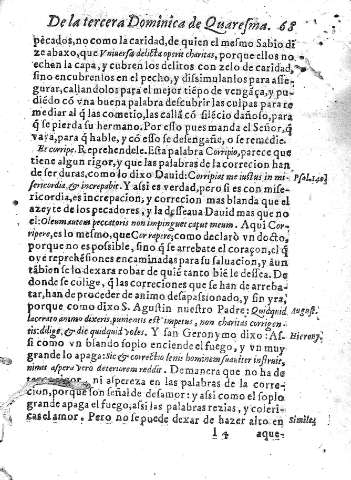 De la tercera Dominica de Quaresma. 68
pecados, no como la caridad, de quien el mesmo Sabio di
ze abaxo, que Vniuersa delicta operit charitas, porque ellos no
echen la capa, y cubren los delitos con zelo de caridad,
sino encubrenlos en el pecho, y dissimulanlos para asse-
gurar, callandolos para el mejor tiẽpo de vengãça, y pu-
diẽdo cõ vna buena palabra descubrir las culpas para re
mediar al q̃ las cometio, las callã cõ silẽcio dañoso, para
q̃ se pierda su hermano. Por esso pues manda el Señor, q̃
vaya, para q̃ hable, y cõ esso se desengañe, o se remedie.
Et corripe. Reprehendele. Esta palabra Corripio, parece que
tiene algun rigor, y que las palabras de correccion han
de ser duras, como lo dixo Dauid: Corripiet me iustus in mi-
sericordia, & increpabit. Y assi es verdad, pero si es con mise-
ricordia, es increpacion, y correcion mas blanda que el
azeyte de los pecadores, y la desseaua Dauid mas que no
el: Oleum autem peccatoris non impinguet caput meum. Aqui Cor-
ripere, es lo mesmo, que Corripere; como declarò vn docto,
porque no es possible, sino q̃ se arrebate el coraçon, el q̃
oye reprehẽsiones encaminadas para su saluacion, y aun
tãbien se lo dexara robar de quiẽ tanto biẽ le dessea. De
donde se colige, q̃ las correciones que se han de arreba-
tar, han de proceder de animo desapassionado, y sin yra,
porque como dixo S. Agustin nuestro Padre: Quidquid
lacerato animo dixeris, punientis est impetus, non charitas corrigen-
tis: dilige, & dic quidquid voles. Y san Geronymo dixo: As-
si como vn blando soplo enciende el fuego, y vn muy
grande lo apaga: Sic & correctio leni hominem suauiter instruit,
nimis aspera vero deteriorem reddit. De manera que no ha de
ni aspereza en las palabras de la corre-
cion, porque son señal de desamor: y assi como el soplo
grande apaga el fuego, assi las palabras rezias, y coleri-
cas el amor. Pero no se puede dexar de hazer alto en
I 4 aque-
Psal. 140.
August.
Hierony.
Simile.